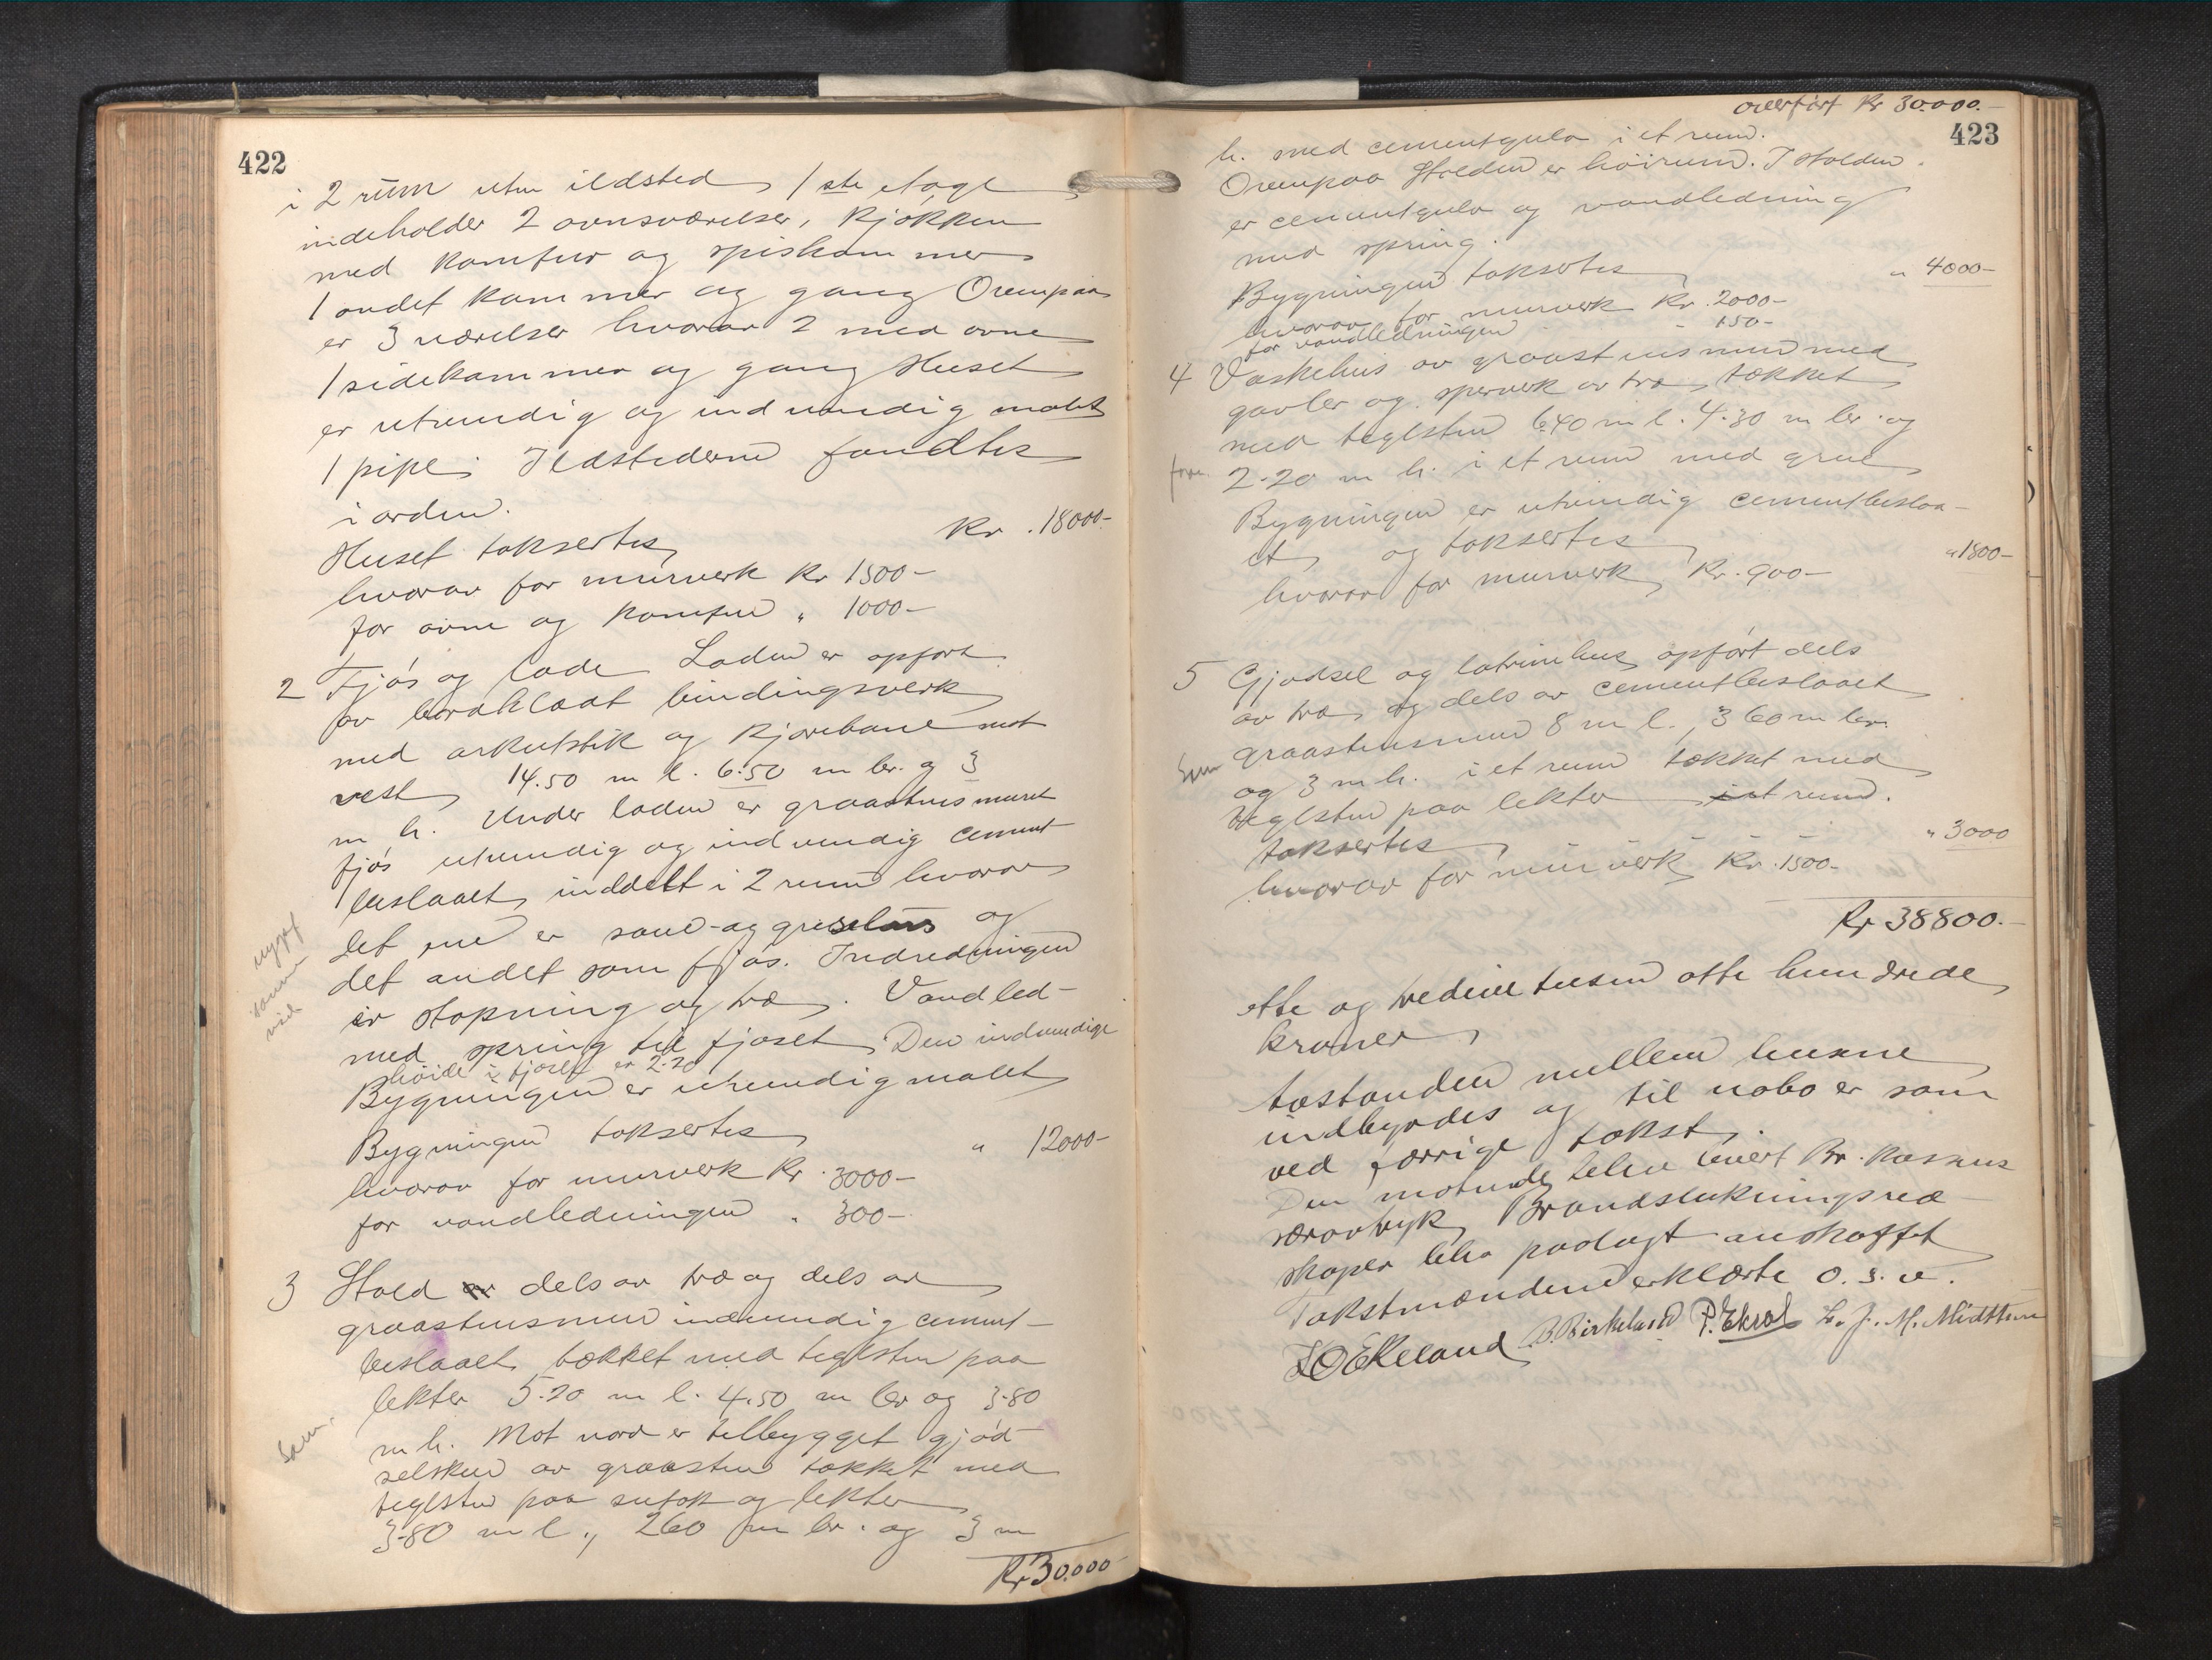 422
i 2 rum uten ildsted, 1ste etage
indeholder 2 ovnsværelser, kjøkken
med komfur og spiskammer
1 andet kammer og gang Ovenpaa
er 3 værelser hvorav 2 med ovne
1 sidekammer og gang Huset
er utvendig og indvendig malet
1 pipe. Ildstederne fandtes
i orden.
Huset taksertes Kr. 18000-
hvorav for murverk Kr 1500-
for ovne og komfur " 1000-
2 Fjøs og lade Laden er opført
av bordklædt bindingsverk
med arkutstik og kjørebane mot
vest, 14.50 m l. 6.50 m br. og 3
m h. Under laden er graastensmuret
fjøs utvendig og indvendig cement-
beslaaet, inddelt i 2 rum hvorav
det ene er saue- og grisehus og
det andet som fjøs. Indredningen
er støpning og træ. Vandled-
med spring til fjøset, Den indvendige
høide i fjøset er 2.20
Bygningen er utvendig malet
Bygningen taksertes " 12000-
hvorav for murverk Kr. 3000-
for vandledningen " 300-
3 Stald dels av træ og dels av
graastensmur indvendig cement-
beslaaet, tækket med teglsten paa
lekter 5.20 m l. 4.50 m br og 3.80
Sam.
m h. Mot nord er tilbygget gjød-
selskur av graasten tækket med
teglsten paa sutak og lekter
3.80 m l., 260 m br. og 3 m
Kr 30.000-
overført Kr 30.000.-
423
h. med cementgulv i et rum.
Ovenpaa Stalden er høirum. I stalden
er cementgulv og vandledning
med spring.
Bygningen taksertes " 4000-
hvorav for murverk Kr. 2000-
for vandledningen - 150-
4 Vaskehus av graastensmur med
gavler og sperverk av træ, tækket
med teglsten 6.40 m l. 4.30 m br. og
2.20 m h. i et rum med grue
Bygningen er utvendig cementbeslaa-
et, og taksertes " 1800-
hvorav for murverk, Kr. 900-
5 Gjødsel og latrinhus opført dels
av træ og dels av cementbeslaaet
graastensmur 8 m l., 3 60 m br.
og 3 m h. i et rum tækket med
teglsten paa lekter i et rum.
taksertes " 3000
hvorav for murverk Kr. 1500-
Kr 38800.-
otte og tredive tusen otte hundrede
kroner,
Avstanden mellem husene
indbyrdes og til nabo er som
ved forrige takst.
Den motende blev levert Br. kasses
særavtryk, Brandslukningsred
skaper blev paalagt anskaffet
Takstmændene erklærte o. s. v.
J O Ekeland B. Birkeland P. Ekrol L. J. M. Midttun